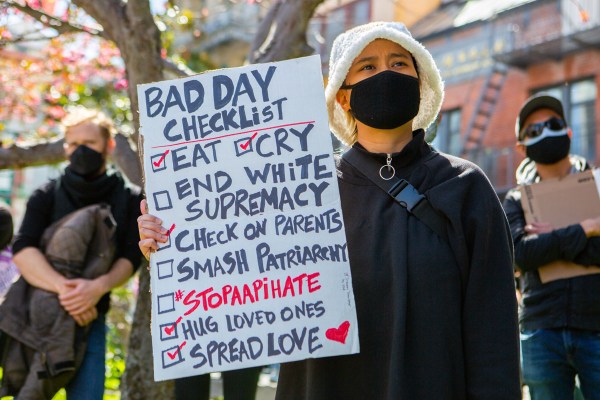 BAD DAY
CHECKLIST
EAT CRY
END WHITE
SUPREMACY
CHECK ON PARENTS
SMASH PATRIARCHY
#STOPAAPIHATE
HUG LOVED ONES
SPREAD LOVE